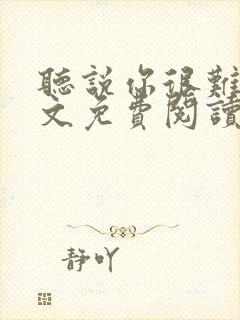 聽說你很難
文免費閱讀
靜吖